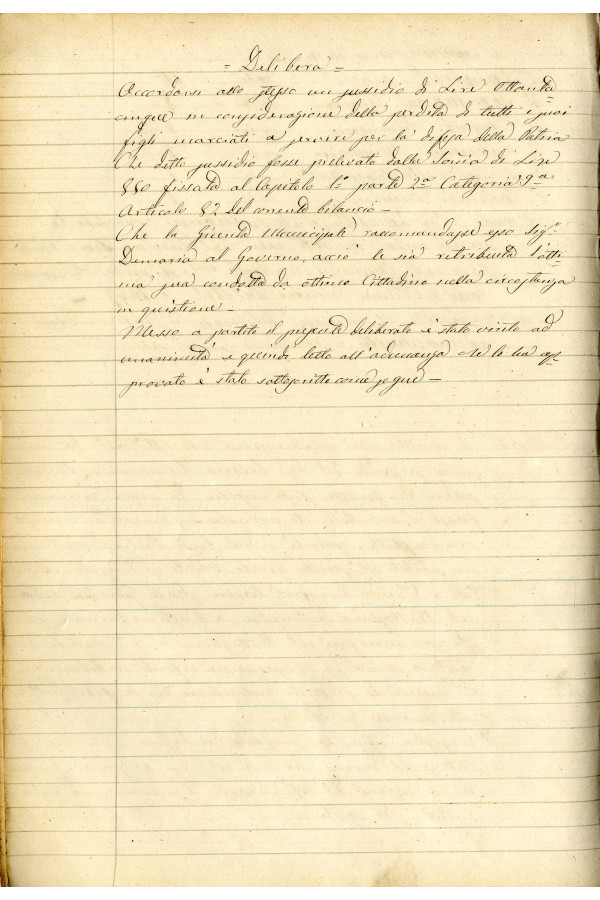 = Delibera =
Accordarsi allo stesso un sussidio di Lire Ottanta
cinque in considerazione della perdita di tutti i suoi
figli marciati a servire per la difesa della Patria
Che detto sussidio fosse prelevato dalla somma di Lire
550 fissata al Capitolo 1° parte 2ª Categoria 9ª
Articolo 52 del corrente bilancio –
Che la Giunta Municipale raccomandasse esso Sigr
Demaria al Governo, acciò le sia retribuita l'otti=
ma sua condotta da ottimo Cittadino nella circostanza
in quistione –
Messo a partito il presente deliberato è stato vinto ad
unanimità e quindi letto all'adunanza che lo ha ap=
provato è stato sottoscritto come segue –